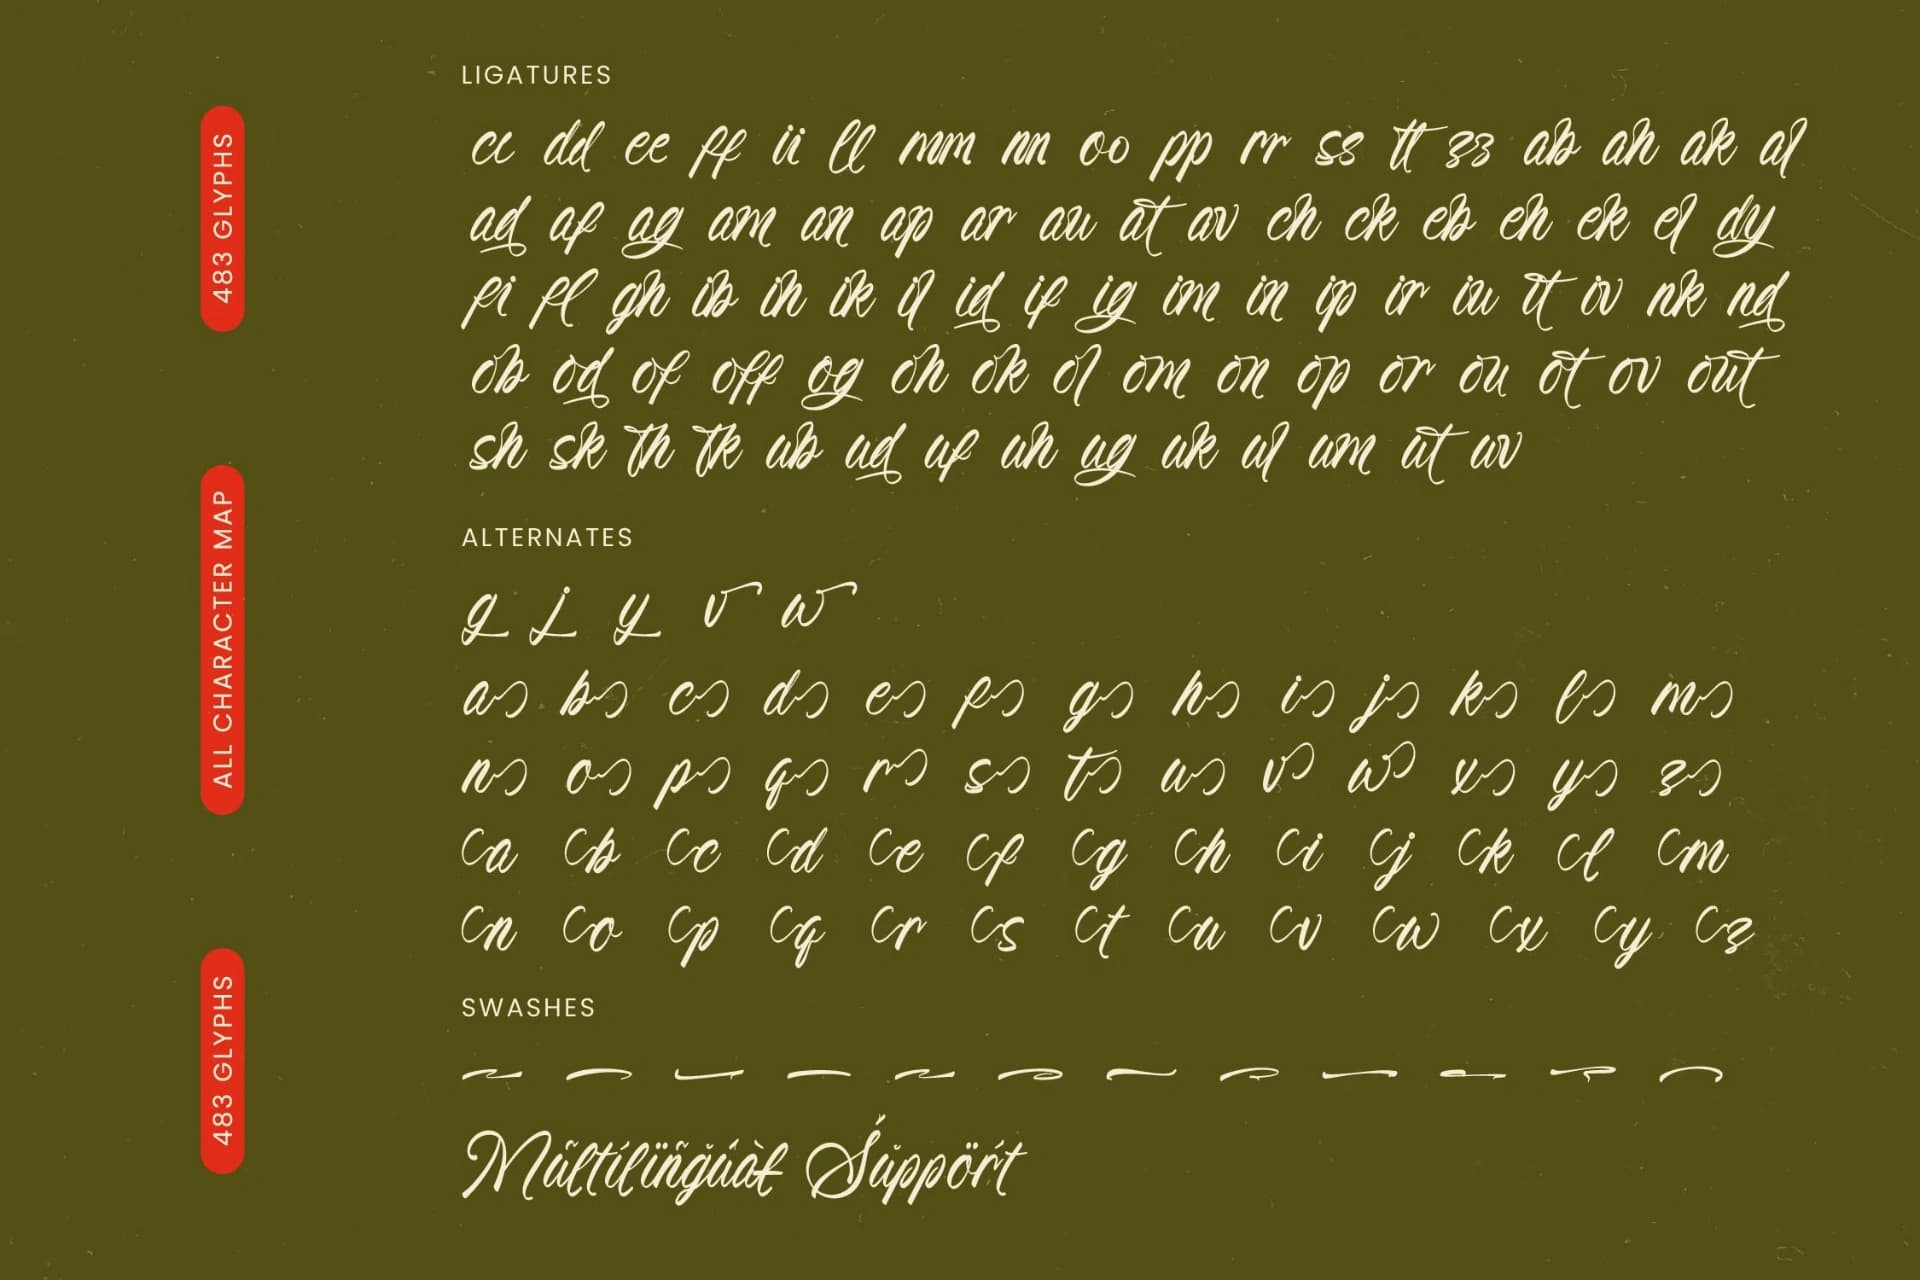 483 GLYPHS
ALL CHARACTER MAP
483 GLYPHS
LIGATURES
cc dd ee ff ii ll mm nn oo pp rr ss tt zz ab ah ak al
ad af ag am an ap ar au at av ch ck eb eh ek el dy
fi fl gh ib ih ik il id if ig im in ip ir iu it iv nk nd
ob od of off og oh ok ol om on op or ou ot ov out
sh sk th tk ub ud uf uh ug uk ul um ut uv
ALTERNATES
g j y v w
a b c d e f g h i j k l m
n o p q r s t u v w x y z
a b c d e f g h i j k l m
n o p q r s t u v w x y z
SWASHES